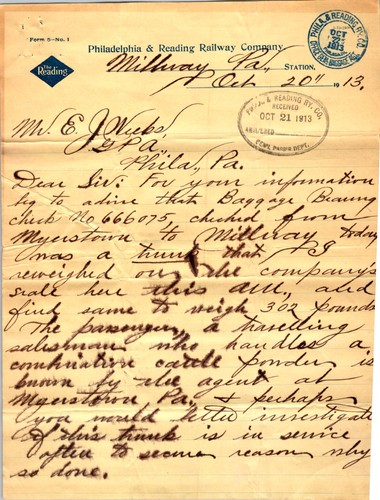 Form 5-No. 1
The Reading
Philadelphia & Reading Railway Company
Millway Pa, STATION,
Oct 20" 1913.
PHILA. & READING RY. CO.
OCT 22 1913
PHILA. & READING RY. CO.
RECEIVED
OCT 21 1913
ANSWERED
GEN'L PASS'R DEPT.
Mr. E. J. Weeks
G P A
Phila, Pa.
Dear Sir: For your information
beg to advise that Baggage Bearing
check No 666075, checked from
Myerstown to Millway today
was a trunk that I
reweighed on the company's
scale here this AM, and
find same to weigh 302 pounds
The passenger, a travelling
salesman who handles a
combination cattle powder is
known by the agent at
Myerstown Pa. & perhaps
you would better investigate
if this trunk is in service
often to secure reason why
so done.